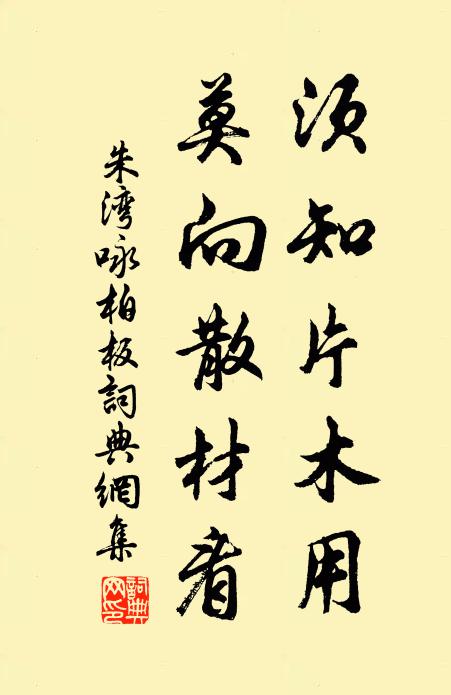 须知片木用
莫向散材看
朱湾咏柏板詞典網集
詞典
网印